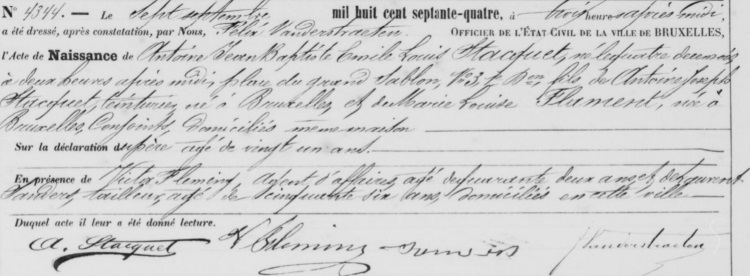 N° 4344. — Le Sept septembre mil huit cent septante-quatre, à trois heures après midi,
a été dressé, après constatation, par Nous, Félix Vanderstraeten, OFFICIER DE L'ÉTAT CIVIL DE LA VILLE DE BRUXELLES,
l'Acte de Naissance de Antoine Jean Baptiste Emile Louis Stacquet, né le quatre de ce mois
à deux heures après midi, place du grand Sablon, fils de Antoine Joseph
Stacquet, teinturier, né à Bruxelles, et de Marie Louise Flament, née à
Bruxelles, Conjoints, domiciliés même maison
Sur la déclaration du père agé de vingt un ans.
En présence de Victor Fleming, agent d'affaires, agé de quarante deux ans, et de Laurent
Sanders, tailleur, agé de cinquante six ans, domiciliés en cette ville
Duquel acte il leur a été donné lecture.
A. Stacquet V Fleming